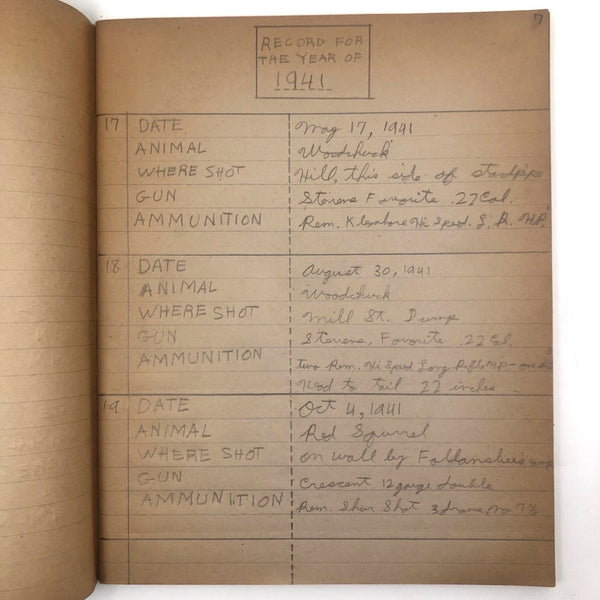 7
RECORD FOR
THE YEAR OF
1941
17 DATE May 17, 1941
ANIMAL Woodchuck
WHERE SHOT Hill, this side of standpipe
GUN Stevens Favorite .22 Cal.
AMMUNITION Rem. Kleanbore Hi Speed. L. R. H.P.
18 DATE August 30, 1941
ANIMAL Woodchuck
WHERE SHOT Mill St. Dump
GUN Stevens, Favorite .22 Cal.
AMMUNITION two Rem. Hi Speed Long Rifle H.P. - one
Head to tail 22 inches
19 DATE Oct 4, 1941
ANIMAL Red Squirrel
WHERE SHOT on wall by Follanshee's
GUN Crescent 12 gauge double
AMMUNITION Rem. Shur Shot 3 drams No 7½